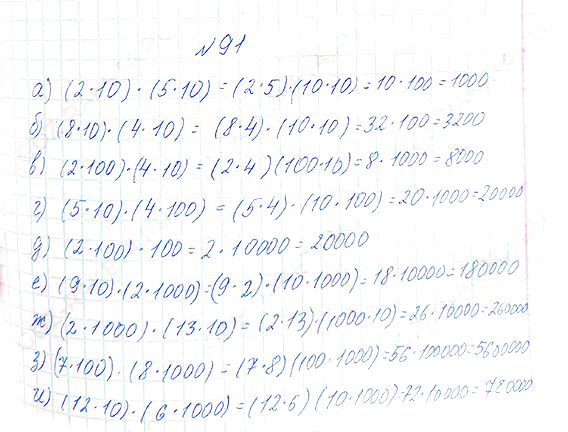 №91
а) (2·10)·(5·10)=(2·5)·(10·10)=10·100=1000
б) (8·10)·(4·10)= (8·4)·(10·10)=32·100=3200
в) (2·100)·(4·10)=(2·4)(100·10)=8·1000=8000
г) (5·10)·(4·100)=(5·4)·(10·100)=20·1000=20000
д) (2·100)·100=2·10000=20000
е) (9·10)·(2·1000)=(9·2)·(10·1000)=18·10000=180000
ж) (2·1000)·(13·10)=(2·13)(1000·10)=26·10000=260000
з) (7·100)·(8·1000)=(7·8)(100·1000)=56·100000=5600000
и) (12·10)·(6·1000)=(12·6)(10·1000)=72·10000=720000